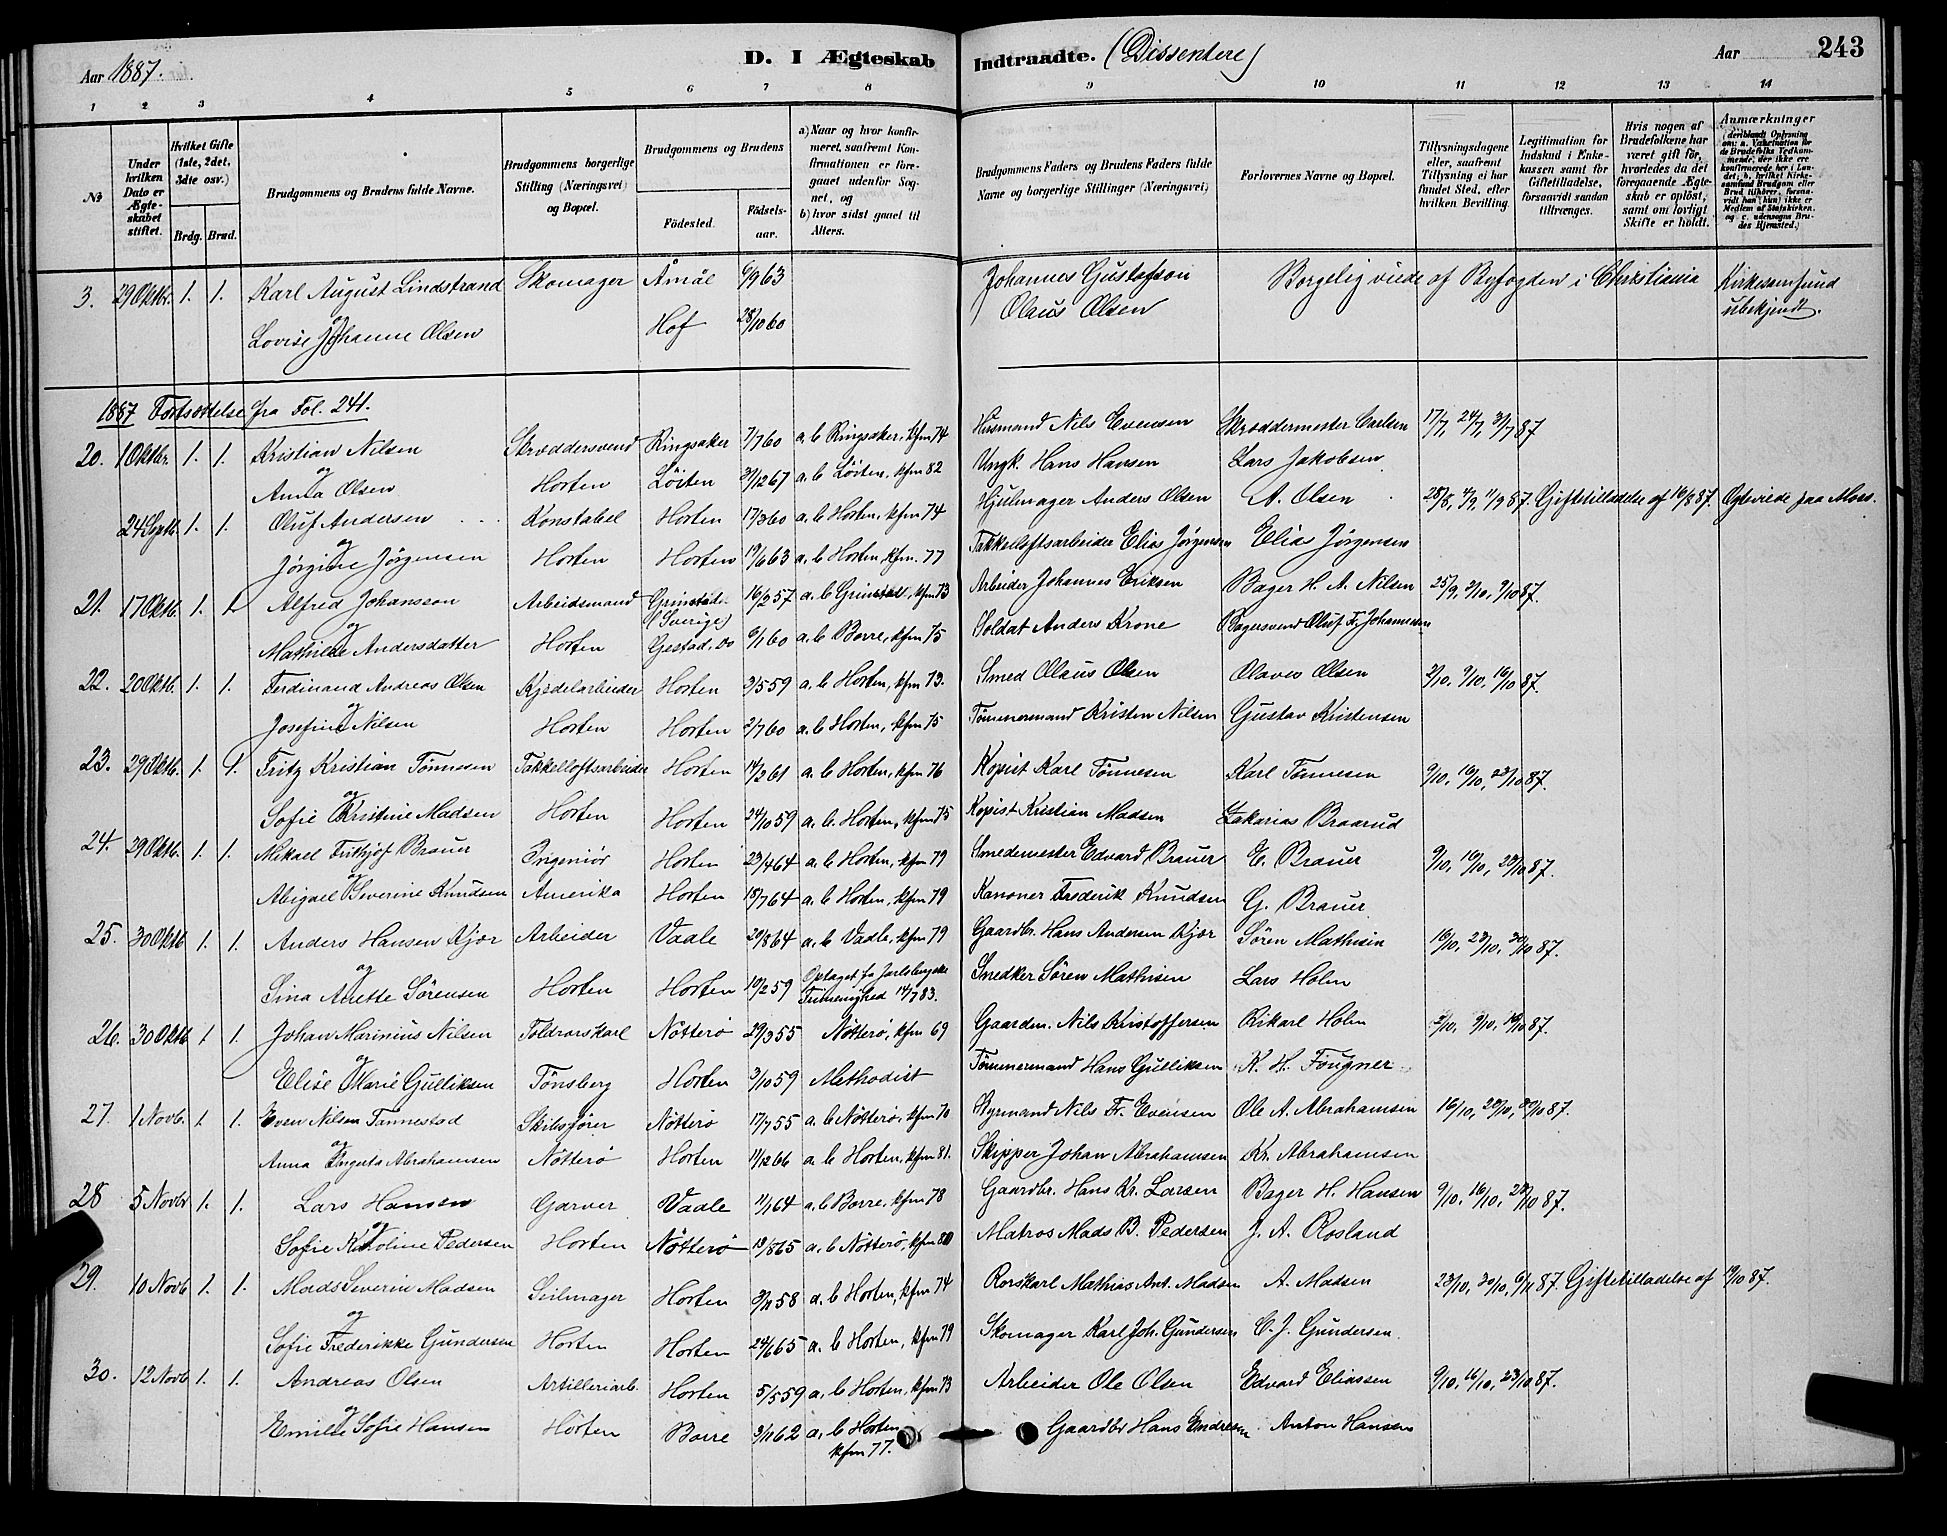 Aar 1887.
D. I Ægteskab
Indtraadte. (Dissentere)
Aar
243
1 2 3 4 5 6 7 8 9 10 11 12 13 14
No
Under hvilken Dato er Ægteskabet stiftet.
Hvilket Gifte (1ste, 2det, 3dte osv.)
Brdg. Brud.
Brudgommens og Brudens fulde Navne.
Brudgommens borgerlige Stilling (Næringsvei) og Bopæl.
Brudgommens og Brudens
Fødested.
Fødselsaar.
a) Naar og hvor konfirmeret, saafremt Konfirmationen er foregaaet udenfor Sognet, og
b) hvor sidst gaaet til Alters.
Brudgommens Faders og Brudens Faders fulde Navne og borgerlige Stillinger (Næringsvei)
Forlovernes Navne og Bopæl.
Tillysningsdagene eller, saafremt Tillysning ei har fundet Sted, efter hvilken Bevilling.
Legitimation for Indskud i Enkekassen samt for Giftetilladelse, forsaavidt saadan tiltrænges.
Hvis nogen af Brudefolkene har været gift før, hvorledes da det foregaaende Ægteskab er opløst, samt om lovligt Skifte er holdt.
Anmærkninger
3. 29 Oktbr. 1. 1. Karl August Lindstrand Skomager Åmål 6/9 63 Johannes Gustafson Borgelig viede af Byfogden i Christiania Kirkesamfund
og Lovise Johanne Olsen Hof 28/10 60 Olaus Olsen ubekjendt.
1887 Fortsættelse fra Fol. 241.
20. 1 Oktbr. 1. 1. Kristian Nilsen Skræddersvend Ringsaker 7/7 60 a. b Ringsaker, kfm 74 Husmand Nils Evensen Skræddermester Carlsen 17/7, 24/7, 31/7 87
og Anna Olsen Horten Løiten 31/12 67 a. b Løiten, kfm 82 Ungk. Hans Hansen Lars Jakobsen
24 Septb. 1. 1. Oluf Andersen Konstabel Horten 17/3 60 a. b Horten, kfm 74 Hjulmager Anders Olsen A. Olsen 28/8, 4/9, 11/9 87. Giftetilladelse af 16/8 87. Ogsviede paa Moss.
og Jørgine Jørgensen Horten Horten 19/6 63 a. b Horten, kfm. 77 Takkelloftsarbeider Elias Jørgensen Elias Jørgensen
21. 17 Oktb. 1. 1 Alfred Johansson Arbeidsmand Grinstad (Sverige) 16/2 57 a. b Grinstad, kfm 73 Arbeider Johannes Eriksen Bager H. A. Nilsen 25/9, 2/10, 9/10 87.
og Mathilde Andersdatter Horten Gestad, do 6/1 60 a. b Borre, kfm 75 Soldat Anders Krone Bagersvend Oluf Fr. Johannesen
22. 20 Oktb. 1. 1. Ferdinand Andreas Olsen Kjedelarbeider Horten 3/5 59 a. b Horten, kfm 73. Smed Olaus Olsen Olaves Olsen 2/10, 9/10, 16/10 87.
og Josefine Nilsen Horten Horten 2/7 60 a. b Horten, kfm 75 Tømmermand Kristen Nilsen Gustav Kristensen
23. 29 Oktb. 1. 1. Fritz Kristian Tønnesen Takkelloftsarbeider Horten 14/2 61 a. b Horten, kfm 76 Kopist Karl Tønnesen Karl Tønnesen 9/10, 16/10, 23/10 87.
og Sofie Kristine Madsen Horten Horten 24/10 59 a. b. Horten, kfm 75 Kopist Kristian Madsen Zakarias Braarud
24. 29 Oktb. 1. 1. Mikael Frithjof Brauer Ingeniør Horten 23/4 64 a. b Horten, kfm 79 Smedemester Edvard Brauer E. Brauer 9/10, 16/10, 23/10 87.
og Abigael Severine Knudsen Amerika Horten 18/7 64 a. b Horten, kfm 79 Kanoner Frederik Knudsen G. Brauer
25. 30 Oktb 1. 1. Anders Hansen Kjær Arbeider Vaale 20/8 64 a. b Vaale, kfm 79 Gaardbr. Hans Andersen Kjær Søren Mathisen 16/10, 23/10, 30/10 87.
og Sina Anette Sørensen Horten Horten 10/2 59 Optaget fra Jarlsbergske Frimenighed 14/7 83. Snedker Søren Mathisen Lars Holm
26. 30 Oktb 1. 1. Johan Marinius Nilsen Toldrorskarl Nøtterø 29/3 55 Nøtterø, kfm 69 Gaardm. Nils Kristoffersen Rikarl Holm 2/10, 9/10, 16/10 87.
og Elise Marie Gulliksen Tønsberg Horten 3/10 59 Methodist Tømmermand Hans Gulliksen K. H. Fougner
27. 1 Novb. 1. 1. Even Nilsen Tannestad Skibsfører Nøtterø 17/7 55 a. b Nøtterø, kfm 70 Styrmand Nils Fr. Evensen Ole A. Abrahamsen 16/10, 23/10, 30/10 87.
og Anna Augusta Abrahamsen Nøtterø Horten 11/12 66 a. b Horten, kfm 81. Skipper Johan Abrahamsen Kr. Abrahamsen
28 5 Novbr 1. 1. Lars Hansen Garver Vaale 11/1 64 a. b Borre, kfm 78 Gaardbr. Hans Kr. Larsen Bager H. Hansen 9/10, 16/10, 23/10 87.
og Sofie Karoline Pedersen Horten Nøtterø 13/8 65 a. b Nøtterø, kfm 80 Matros Mads B. Pedersen J. A. Rosland
29. 10 Novb 1. 1. Mads Severin Madsen Seilmager Horten 3/11 58 a. b Horten, kfm 74 Rorskarl Mathias Ant. Madsen A. Madsen 23/10, 30/10, 6/11 87. Giftetilladelse af 19/10 87.
og Sofie Frederikke Gundersen Horten Horten 24/6 65 a. b Horten, kfm 79 Skomager Karl Joh. Gundersen C. J. Gundersen.
30. 12 Novb 1. 1. Andreas Olsen Artilleriarb. Horten 5/5 59 a. b Horten, kfm 73 Arbeider Ole Olsen Edvard Eliassen 9/10, 16/10, 23/10 87.
og Emilie Sofie Hansen Horten Borre 3/11 62 a. b Horten kfm 77. Gaardbr Hans Endresen Anton Hansen